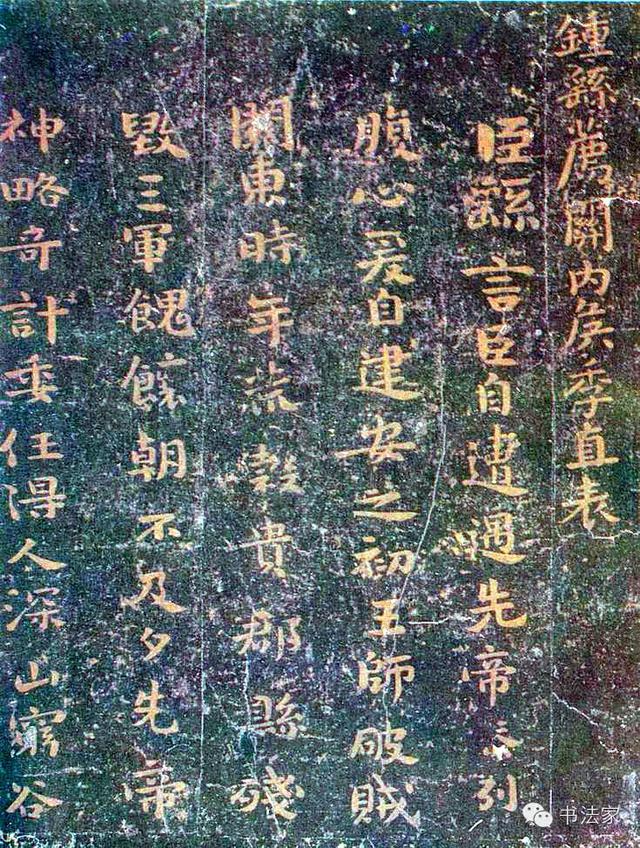 鍾繇薦關内侯季直表
臣繇言臣自遭遇先帝忝列
腹心爰自建安之初王師破賊
關東時年荒穀貴郡縣殘
毀三軍餽饟朝不及夕先帝
神略奇計委任得人深山窮谷
书法家